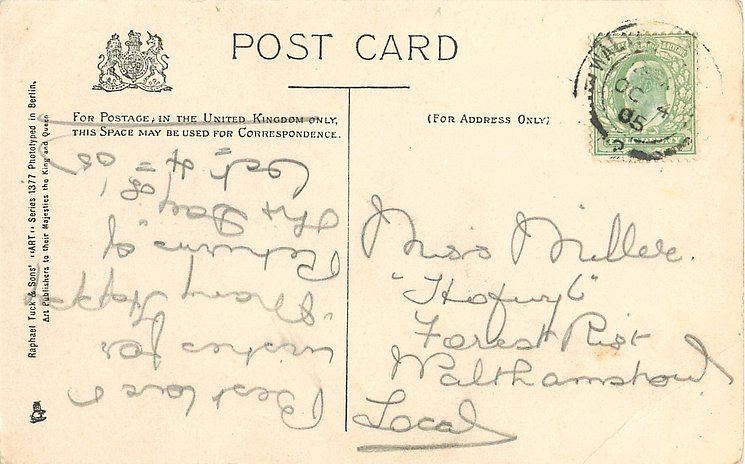 POST CARD
FOR POSTAGE, IN THE UNITED KINGDOM ONLY,
THIS SPACE MAY BE USED FOR CORRESPONDENCE.
(FOR ADDRESS ONLY)
OC 4
05
Raphael Tuck & Sons' "ART" Series 1377 Phototyped in Berlin.
Art Publishers to their Majesties the King and Queen
Best love &
wishes for
"Many Happy
Returns of
the Day"
Oct 4th 05
Miss Miller.
"Hofwyl"
Forest Rise
Walthamstow
Local